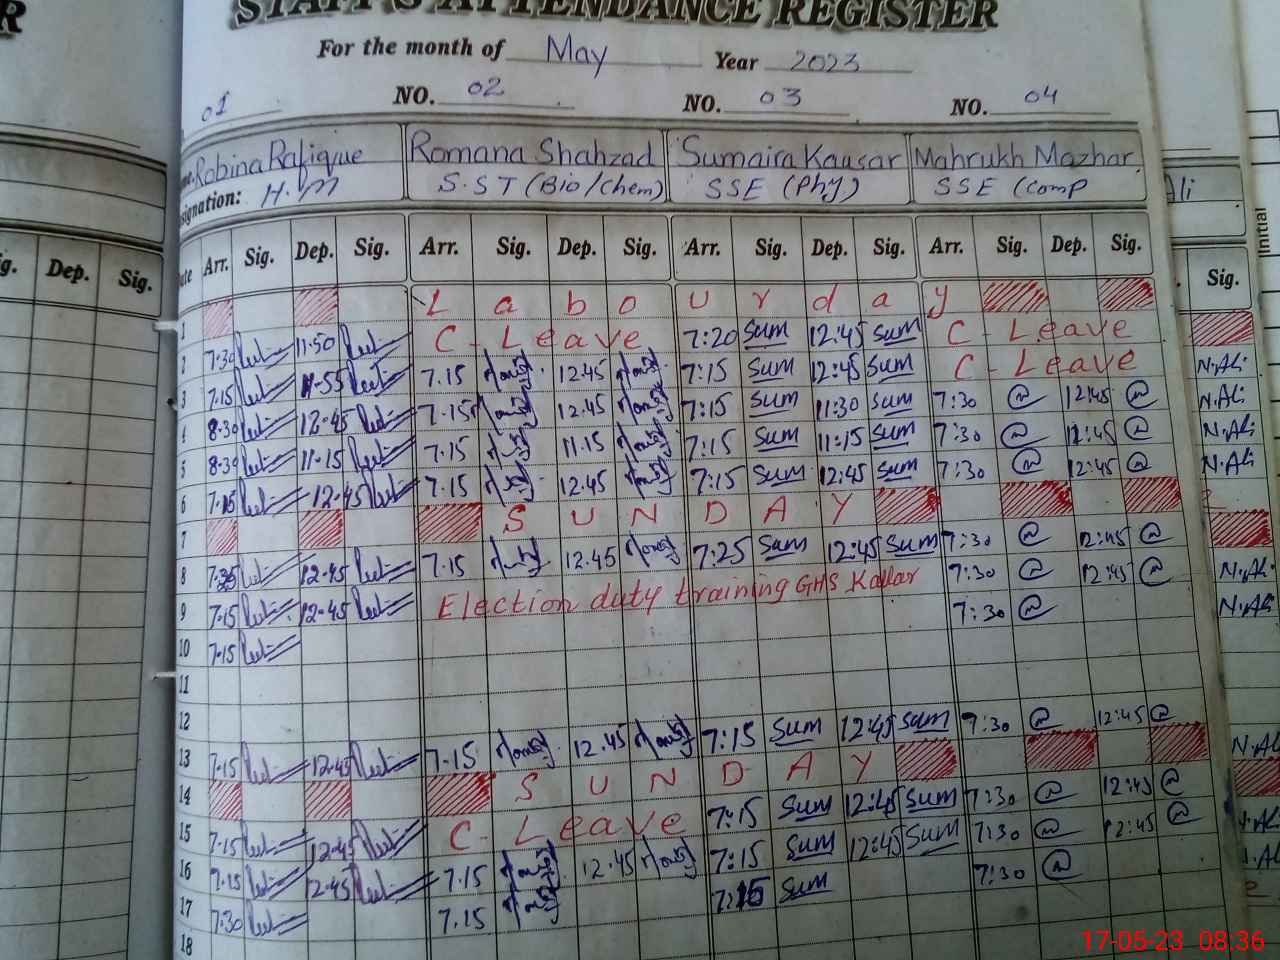 R STAFF'S ATTENDANCE REGISTER
For the month of May Year 2023
01 NO. 02 NO. 03 NO. 04
Robina Rafique Romana Shahzad Sumaira Kausar Mahrukh Mazhar
signation: H.M S.ST (Bio/Chem) SSE (Phy) SSE (Comp Ali Initial
g. Dep. Sig. Arr. Sig. Dep. Sig. Arr. Sig. Dep. Sig. Arr. Sig. Dep. Sig. Arr. Sig. Dep. Sig. Sig.
1 L a b o u r d a y
2 7:30 11:50 C - Leave 7:20 Sum 12:45 Sum C - Leave
3 7.15 11-55 7.15 12.45 7:15 Sum 12:45 Sum C - Leave N.Ali
4 8.30 12-45 7.15 12.45 7:15 Sum 11:30 Sum 7:30 @ 12:45 @ N.Ali
5 8.30 11-15 7.15 11.15 7:15 Sum 11:15 Sum 7:30 @ 12:45 @ N.Ali
6 7.15 12-45 7.15 12.45 7:15 Sum 12:45 Sum 7:30 @ 12:45 @ N.Ali
7 S U N D A Y
8 12-45 7.15 12.45 7:25 Sum 12:45 Sum 7:30 @ 12:45 @ N.Ali
9 7.15 12-45 Election duty training GHS Kallar 7:30 @ 12:45 @ N.Ali
10 7.15 7:30 @
11
12
13 7.15 12-45 7.15 12.45 7:15 Sum 12:45 Sum 7:30 @ 12:45 @ N.Ali
14 S U N D A Y
15 7.15 12-45 C - Leave 7:15 Sum 12:45 Sum 7:30 @ 12:45 @
16 7.15 2-45 7.15 12.45 7:15 Sum 12:45 Sum 7:30 @ 12:45 @
17 7:30 7.15 7:15 Sum 7:30 @
18
17-05-23 08:36